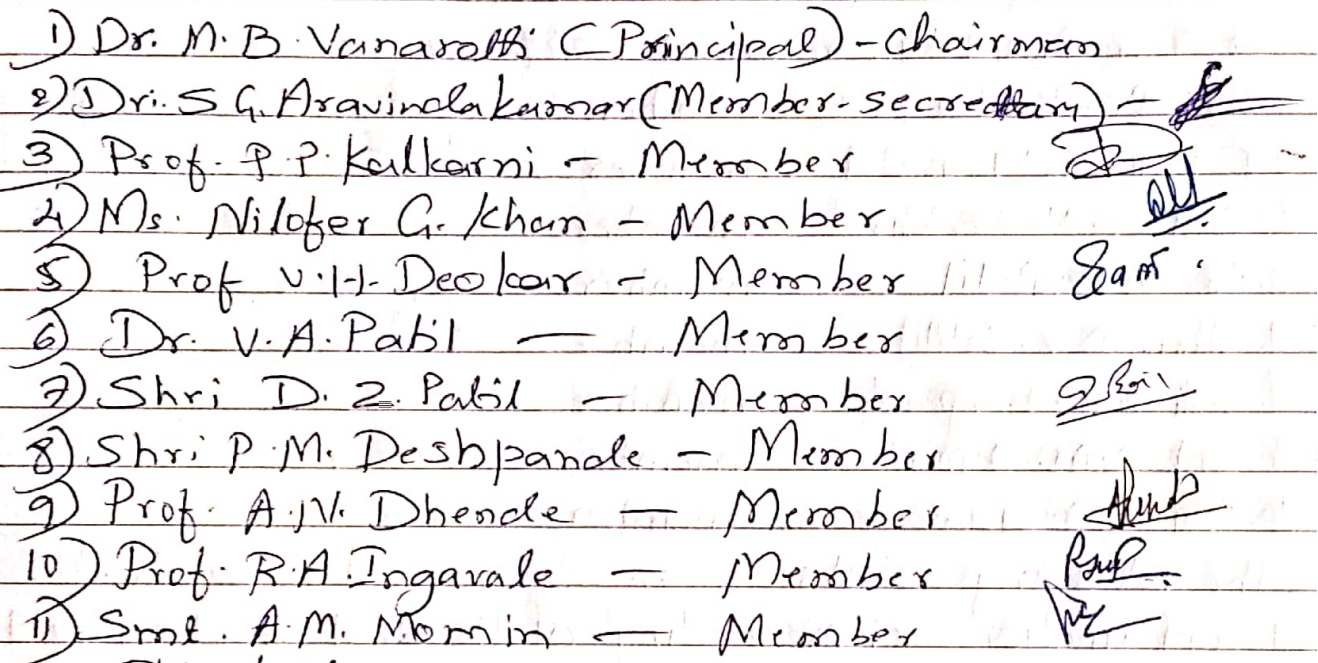 1) Dr. M. B. Vanarotti (Principal) - Chairman
2) Dr. S. G. Aravindakumar (Member-secretary) -
3) Prof. P. P. Kulkarni - Member
4) Ms. Nilofer G. Khan - Member
5) Prof V. H. Deokar - Member
6) Dr. V. A. Patil — Member
7) Shri D. Z. Patil - Member
8) Shri P. M. Deshpande - Member
9) Prof. A. V. Dhende — Member
10) Prof. R. A. Ingavale — Member
11) Smt. A. M. Momin — Member